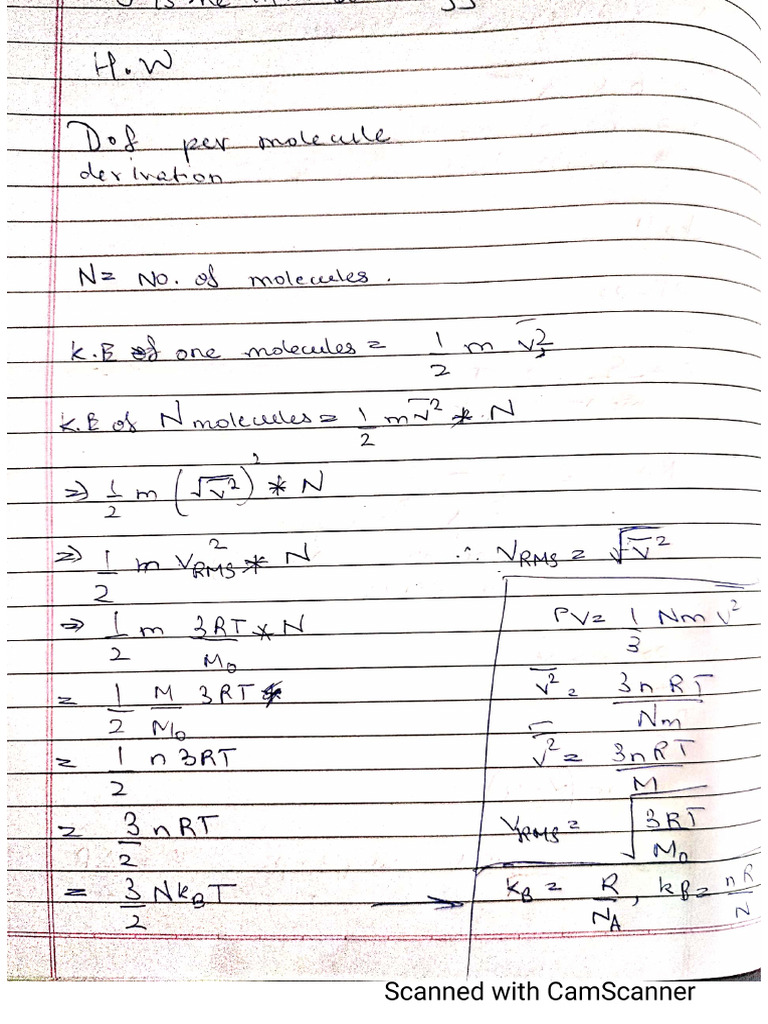 H.W
Dof per molecule
derivation
N = No. of molecules.
K.E of one molecules = 1/2 m v̅²
K.E of N molecules = 1/2 m v̅² * N
⇒ 1/2 m (√v̅²)² * N
⇒ 1/2 m V_RMS² * N ∴ V_RMS = √v̅²
⇒ 1/2 m 3RT/M₀ * N
= 1/2 M/M₀ 3RT
= 1/2 n 3RT
= 3/2 nRT
= 3/2 N k_B T →
PV = 1/3 Nm v̅²
v̅² = 3nRT/Nm
v̅² = 3nRT/M
V_RMS = √(3RT/M₀)
k_B = R/N_A, k_B = nR/N
Scanned with CamScanner